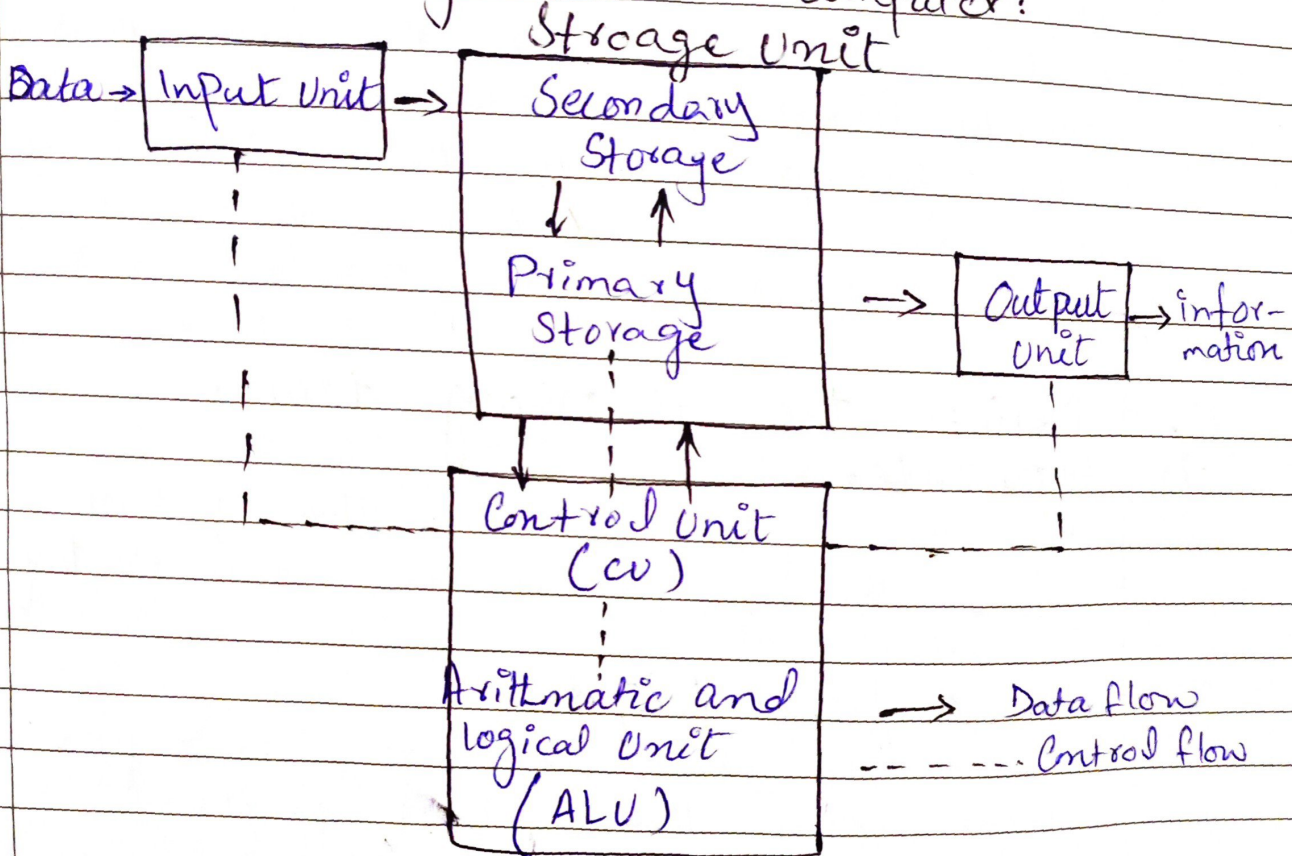 computer?
Stroage Unit
Data → Input Unit →
Secondary
Storage
↓ ↑
Primary
Storage
→ Output
Unit
→ infor-
mation
Control Unit
(CU)
Arithmatic and
logical Unit
(ALU)
→ Data flow
- - - - - Control flow